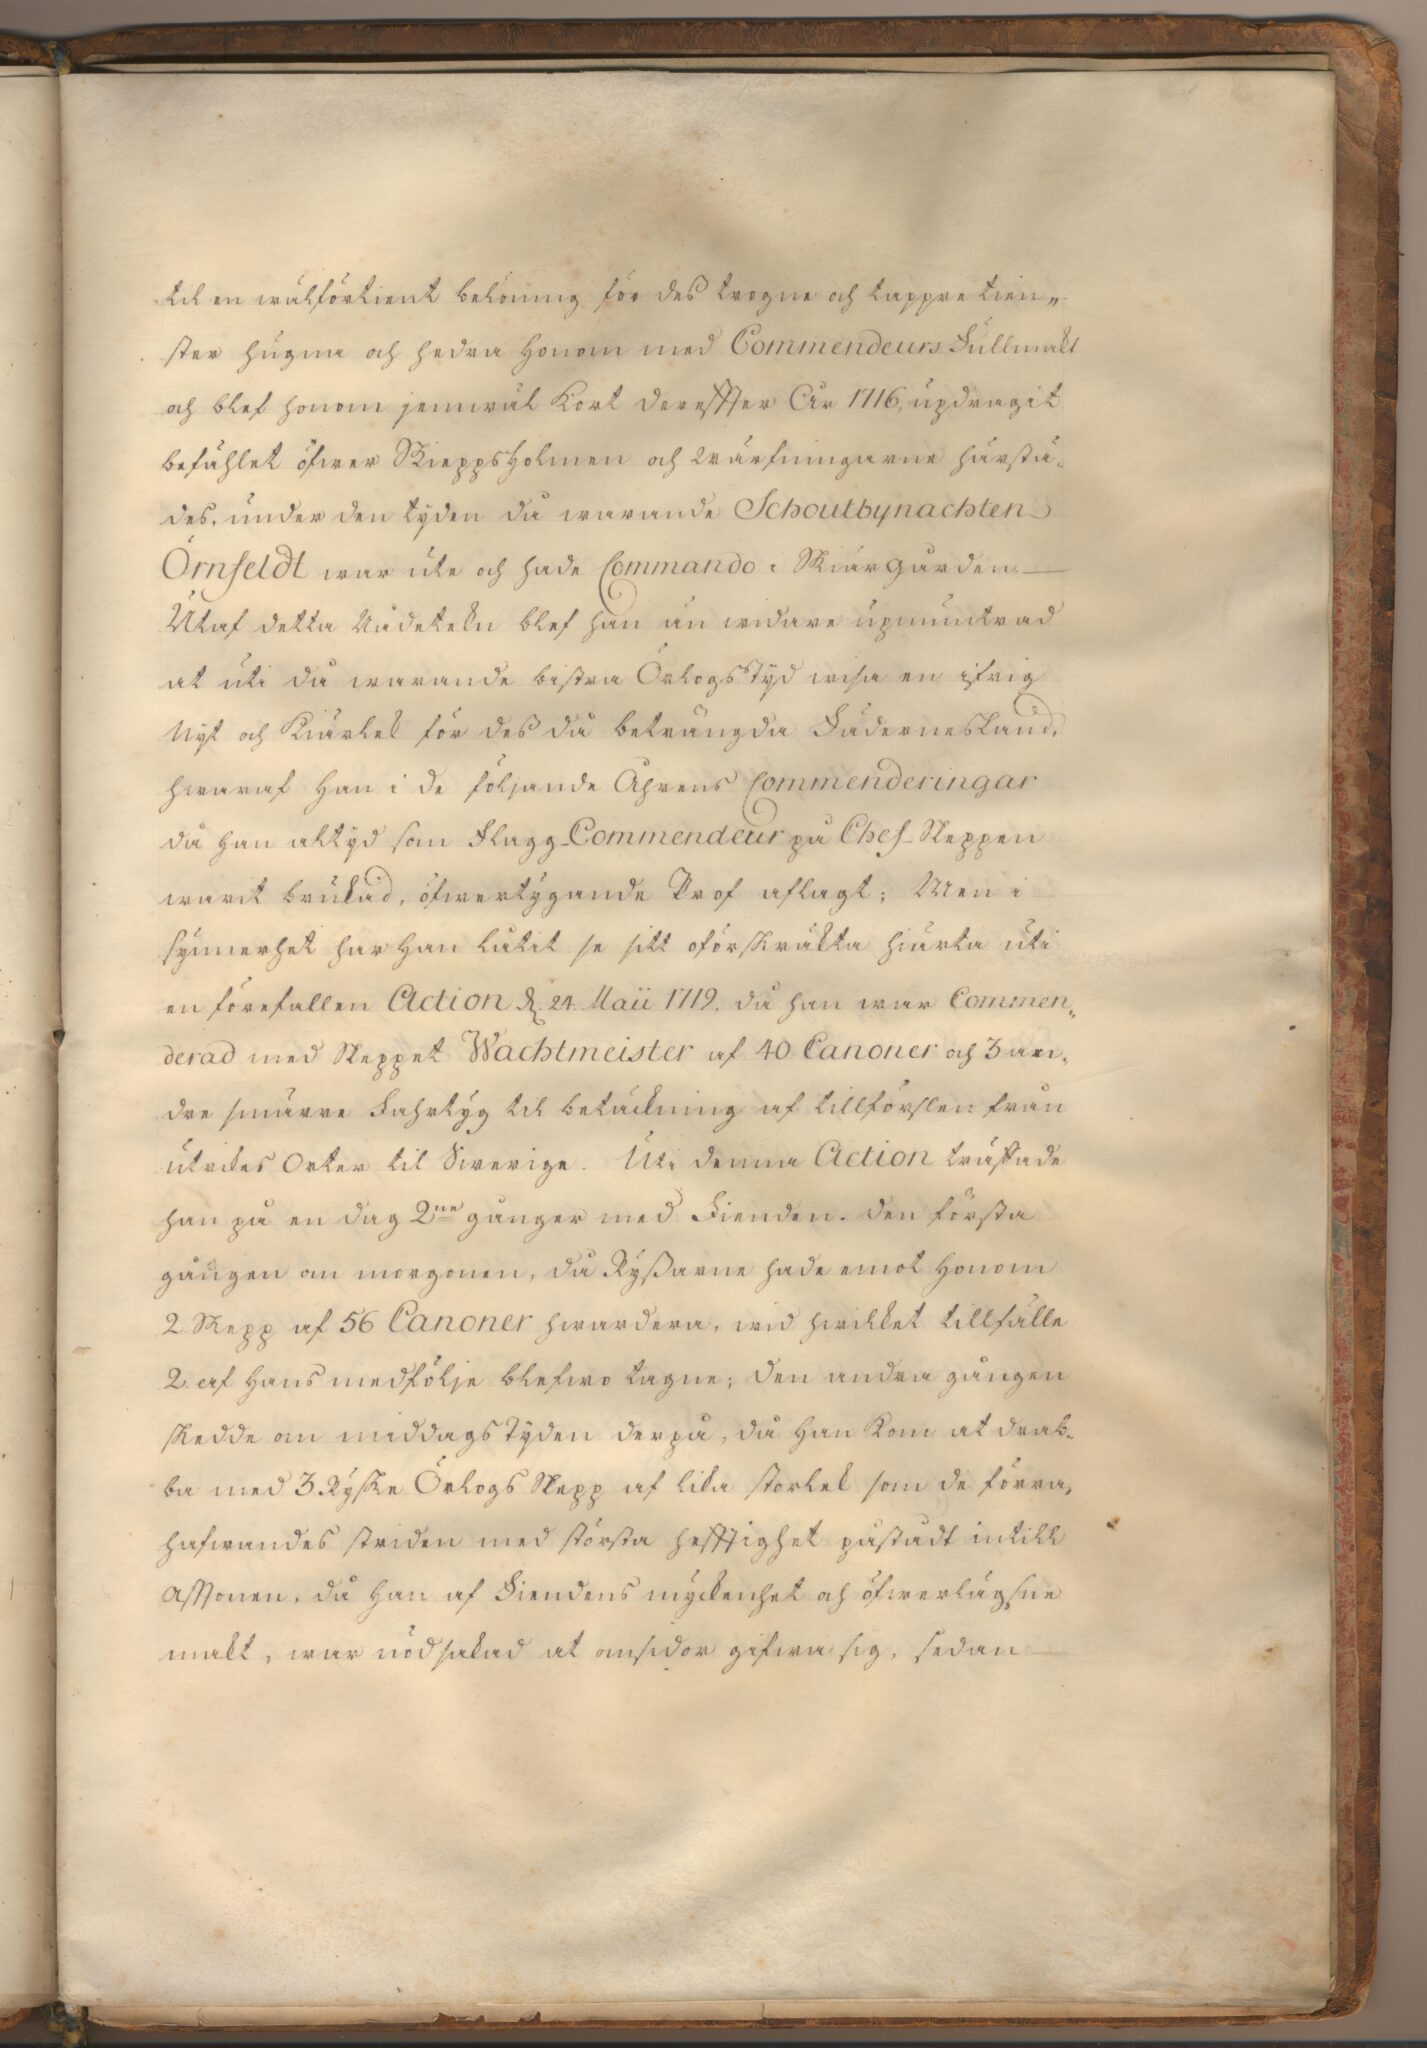 til en wälförtient belöning för des trogne och tappre tien„
ster hugna och hedra Honom med Commendeurs Fullmakt
och blef honom jemwäl Kort derefter År 1716, updragit
befählet öfwer Skieppsholmen och Wärfningarne härstä„
des, under den tyden då warande Schoutbynachten
Örnfeldt war ute och hade Commando i Skiärgården. —
Utaf detta Nådetekn blef han än widare upmuntrad
at uti då warande bistra Örlogstyd wisa en ifrig
Nyt och Kiärlek för deß då beträngda Fädernesland,
hwaraf Han i de följande Åhrens Commenderingar
då han altyd som Flagg-Commendeur på Chef-Skeppen
warit brukad, öfwertygande Prof aflagt; Men i
synnerhet har Han låtit se sitt oförskräkta hiärta uti
en förefallen Action d. 24 Maii 1719, då han war Commen„
derad med Skeppet Wachtmeister af 40 Canoner och 3 an„
dre smärre Fahrtyg til betäckning af tillförslen från
utrikes Orter til Swerige. Uti denna Action träffade
han på en dag 2ne gånger med Fienden. Den första
gången om morgonen, då Ryßarne hade emot Honom
2 Skepp af 56 Canoner hwardera, wid hwilket tillfälle
2 af Hans medfölje blefwo tagne; den andra gången
skedde om middagstyden derpå, då Han Kom at drab„
ba med 3 Ryske Örlogs Skepp af lika storlek som de förra,
hafwandes striden med största hefftighet påstådt intill
afftonen, då Han af Fiendens myckenhet och öfwerlägsne
makt, war nödsakad at omsidor gifwa sig, sedan —